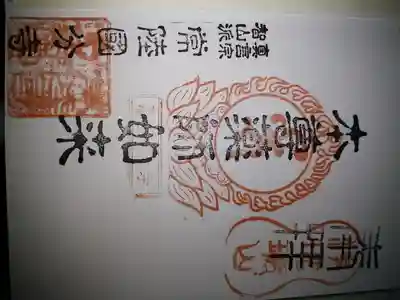 奉拝
本尊薬師如来
真言宗
智山派
常陸國分寺